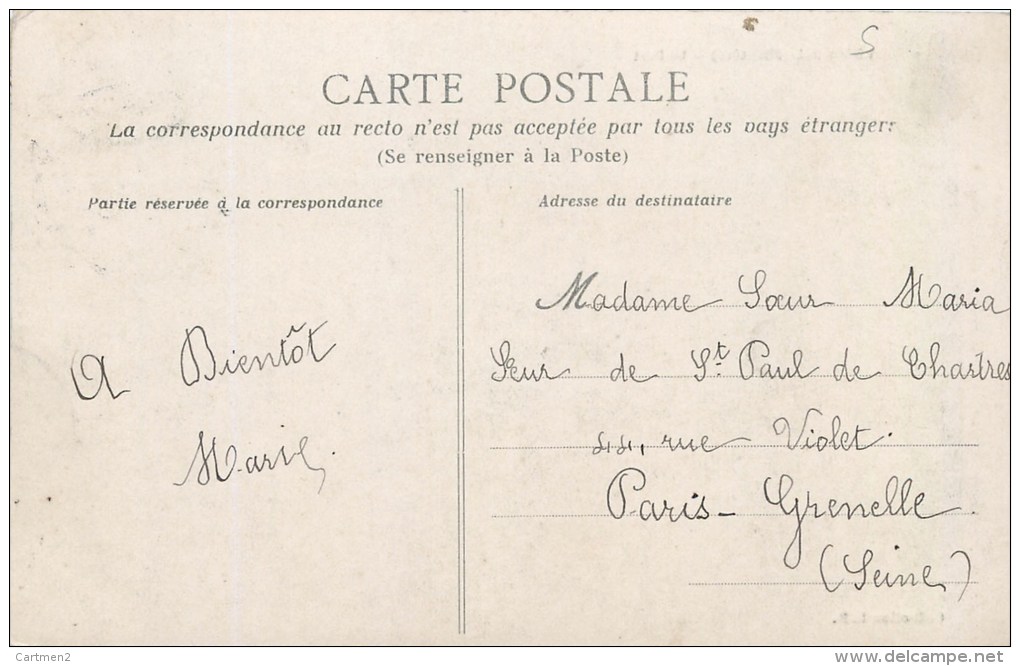 S
CARTE POSTALE
La correspondance au recto n'est pas acceptée par tous les pays étrangers
(Se renseigner à la Poste)
Partie réservée à la correspondance
Adresse du destinataire
A Bientôt
Marie
Madame Sœur Maria
Sœur de St Paul de Chartres
44, rue Violet.
Paris - Grenelle.
(Seine)
Cartmen2
www.delcampe.net